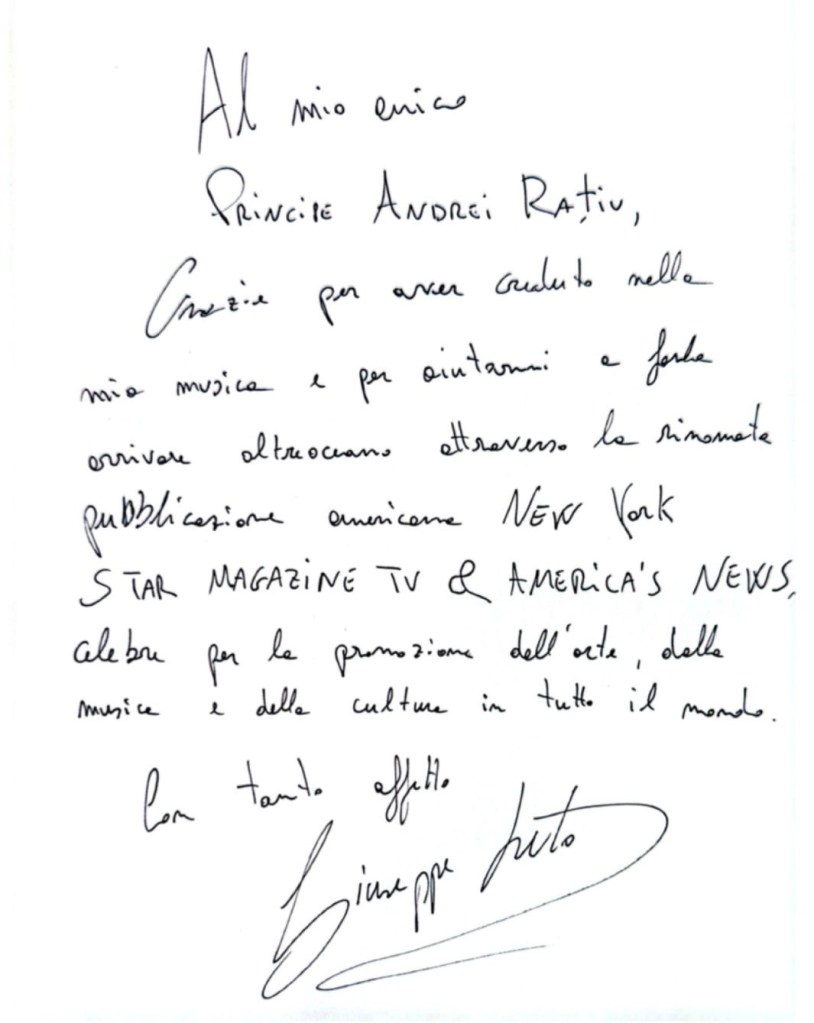 Al mio amico
Principe Andrei Rațiu,
Grazie per aver creduto nella
mia musica e per aiutarmi a farla
arrivare oltreoceano attraverso la rinomata
pubblicazione americana NEW York
STAR MAGAZINE TV & AMERICA'S NEWS,
celebre per la promozione dell'arte, della
musica e della cultura in tutto il mondo.
Con tanto affetto
Giuseppe